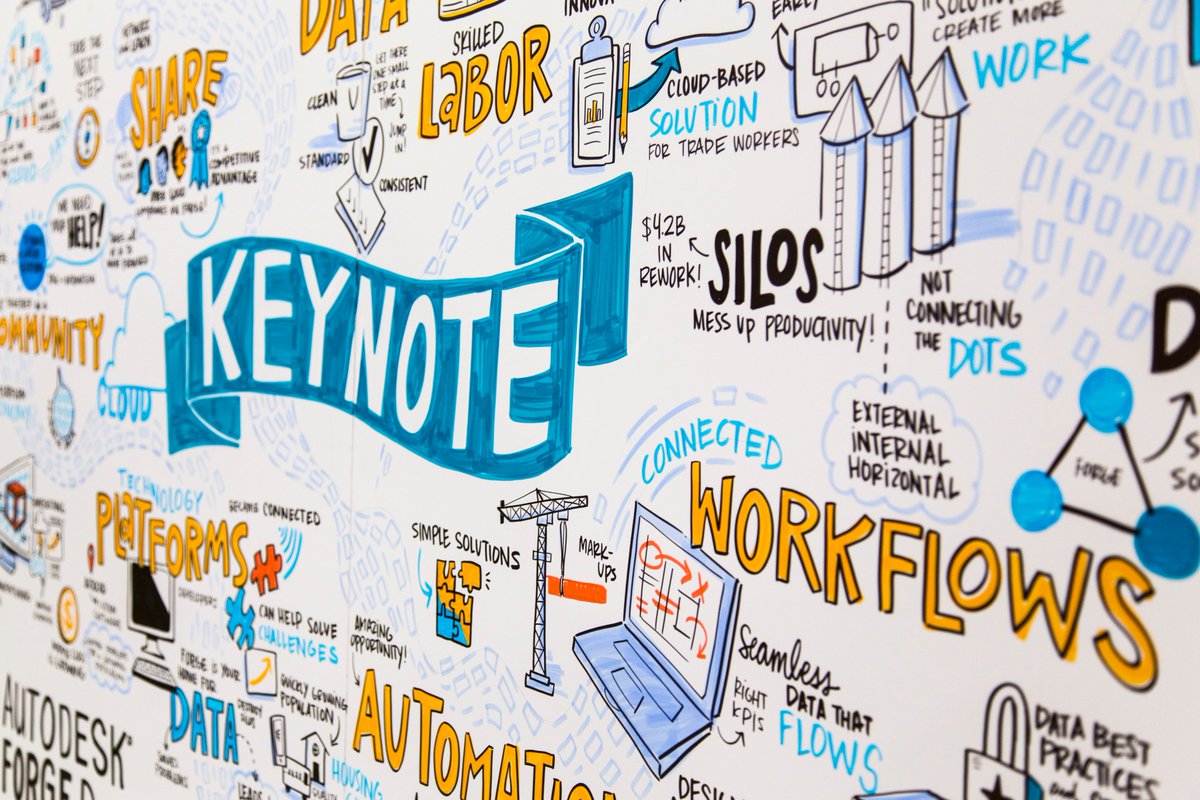 DATA
SKILLED
LABOR
EARLY
CREATE MORE
WORK
CLOUD-BASED
SOLUTION
FOR TRADE WORKERS
TAKE THE
NEXT
STEP
SHARE
COMPETITIVE
ADVANTAGE
CLEAN
STANDARD
CONSISTENT
GET THERE
ONE SMALL
STEP AT A
TIME
JUMP
IN!
WE NEED
YOUR
HELP!
KEYNOTE
$4.2B
IN
REWORK!
SILOS
MESS UP PRODUCTIVITY!
NOT
CONNECTING
THE
DOTS
EXTERNAL
INTERNAL
HORIZONTAL
FORGE
OMMUNITY
CLOUD
CONNECTED
WORKFLOWS
TECHNOLOGY
PLATFORMS
BECAME CONNECTED
SIMPLE SOLUTIONS
MARK-
UPS
DEVELOPERS
CAN HELP SOLVE
CHALLENGES
AMAZING
OPPORTUNITY!
FORGE IS YOUR
HOME FOR
DATA
QUICKLY GROWING
POPULATION
HOUSING
AUTOMATI
Seamless
DATA THAT
FLOWS
RIGHT
KPIs
DATA BEST
PRACTICES
AUTODESK
FORGED